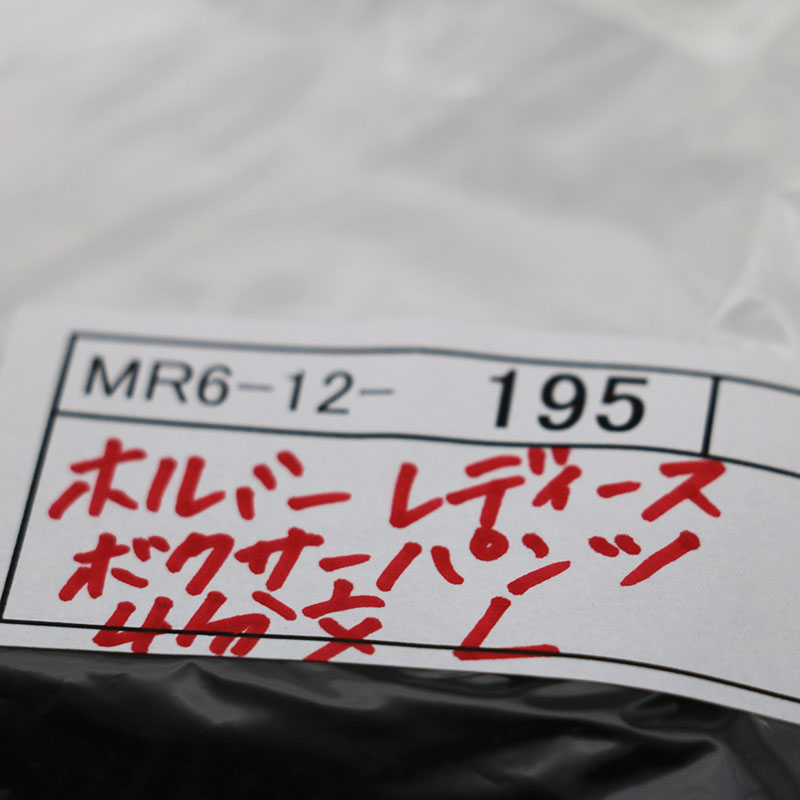 MR6-12- 195
ホルバー レディース
ボクサーパンツ
4分丈 L